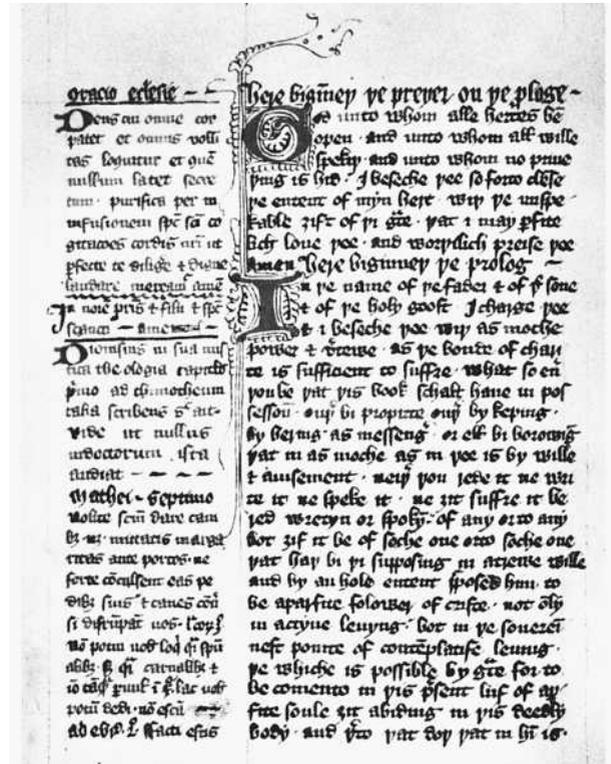 oracio eclesie
Deus cui omne cor
patet et omnis volū
tas loquitur et quē
nullum latet secre
tum · purifica per in
infusionem spc̄ scī co
gitacōes cordis nrī ut
ꝑfecte te diligē & digne
laudare mereamur amē
In noīe pr̄is & filii & spc̄
scī amen
Dionisius in sua mis
tica theologia capitulo
pīmo ad thimotheum
talia scribens sic ait ·
vide ut nullus
indoctorum ista
audiat
Mathei · septimo
Nolite scm̄ dare cani
bꝫ · nꝫ · mittatis marga
ritas ante porcos · ne
forte cōculcent eas pe
dibꝫ suis & canes cōu
si disrūpāt vos ·
nō potui vobis loqi qͥ spū
abbꝫ · qͥ carnalibꝫ &
lac vob
potū dedi · nō escū
facti estis
Here biginneþ ye preyer on ye ꝓloge
God unto whom alle hertes ben
open · and unto whom alle wille
spekiþ · and unto whom no priue
þing is hid · I beseche þee so forto clēse
þe entent of myn hert · wiþ þe unspe
kable ȝift of þi gͣce · þat i may ꝑfite
lich love þee · and worþilich preise þee
amen Here biginneþ þe prolog
In þe name of þe fader & of þͤ sone
& of þe holy goost · I charge þee
& i beseche þee wiþ as moche
power & vͥtewe · as þe bonde of chari
te is sufficient to suffre · what so eū
þou be þat þis book schalt haue in pos
sessoū · ouþͬ bi propirte ouþͬ by keping ·
by bering as messengͬ · or ells bi borowīg
þat in as moche as in þee is by wille
& auisement · neiþͬ þou rede it ne wri
te it ne speke it · ne ȝit suffre it be
red wretyn or spokyn · of any or to any
bot ȝif it be of soche one or to soche one
þat haþ bi þi supposing in a trewe wille
and by an hole entent sposed him to
be a parfite folower of criste · not ōly
in actyve leuyng · bot in þe souerei
nest pointe of contēplatife leuing ·
þe whiche is possible by gͣce for to
be comen to in þis pͬsent liif of a ꝑ
fite soule ȝit abiding in þis deedly
body · and þͬto þat doþ þat in hī is ·